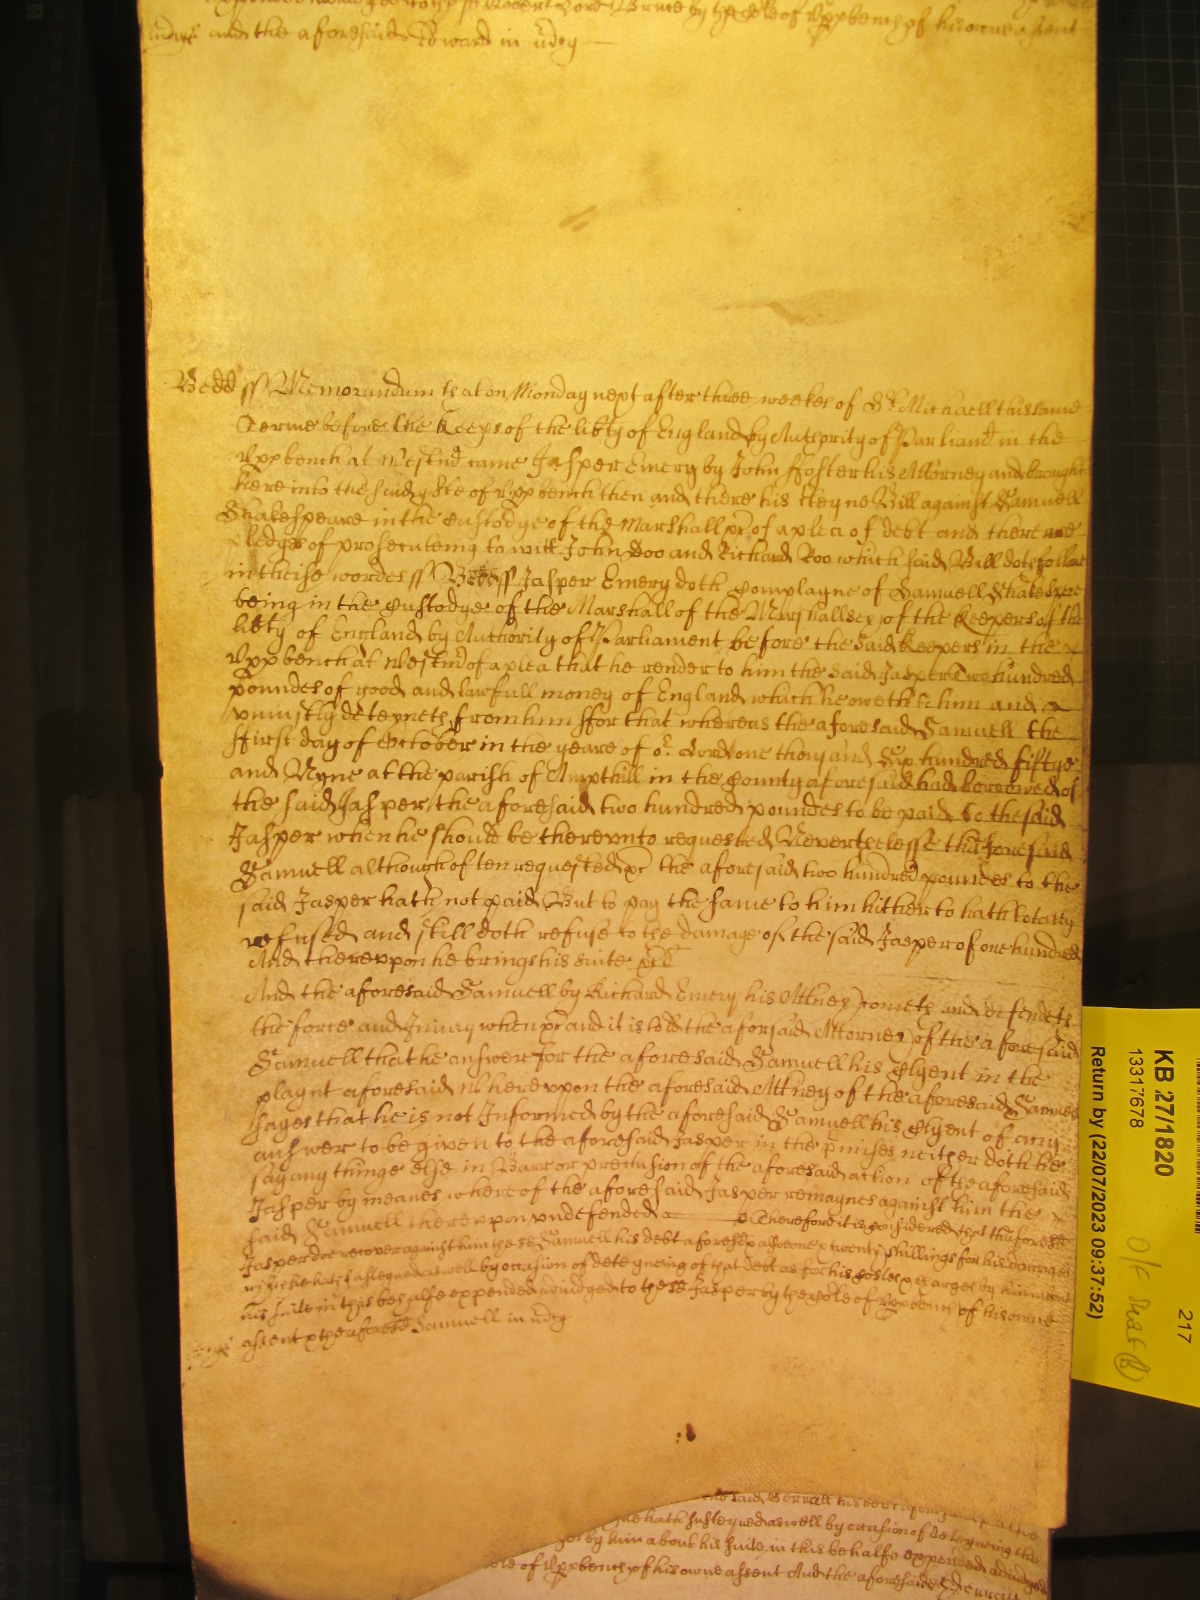 and the aforesaid Edward in m̃cy
Bedd ss Memorandum that on Monday next after three weekes of St Michaell this same
Terme before the Keeps of the libty of England by Authority of Parliamt in the
Vpp bench at Westmr came Jasper Emery by John ffoster his Attorney and brought
here into the said Cote of Vpp bench then and there his cteyne Bill against Samuell
Shakespeare in the Custodye of the Marshall &c of a plea of debt and there are
pledges of prosecuteing to witt John Doo and Richard Roo which said Bill doth follow
in theise wordes ss Bedd ss Jasper Emery doth Complayne of Samuell Shakespere
being in the Custodye of the Marshall of the Marshallsey of the Keepers of the
libty of England by Authority of Parliament before the said Keepers in the
Vpp bench at Westmr of a plea that he render to him the said Jasper Two hundred
poundes of good and lawfull money of England which he oweth to him and
vniustly deteyneth from him ffor that whereas the aforesaid Samuell the
ffirst day of October in the yeare of or Lord one thousand Six hundred fiftye
and Nyne at the parish of Ampthill in the County aforesaid had borrowed of
the said Jasper the aforesaid two hundred poundes to be paid to the said
Jasper when he should be therevnto requested Neverthelesse the aforesaid
Samuell although often requested &c the aforesaid two hundred poundes to the
said Jasper hath not paid But to pay the same to him hitherto hath totally
refused and still doth refuse to the damage of the said Jasper of one hundred
And therevpon he brings his suite &c
And the aforesaid Samuell by Richard Emery his Attney cometh and defendeth
the force and Iniury when &c and it is told the aforsaid Attorney of the aforesaid
Samuell that he answer for the aforesaid Samuell his Clyent in the
playnt aforesaid Wherevpon the aforesaid Attney of the aforesaid Samuell
sayes that he is not Informed by the aforesaid Samuell his Clyent of any
answer to be given to the aforesaid Jasper in the pmises neither doth he
say any thinge else in Barr or preclusion of the aforesaid action of the aforesaid
Jasper by meanes whereof the aforesaid Jasper remaynes against him the
said Samuell therevpon vndefended Therefore it is considered that the foresd
Jasper doe recover against him the sd Samuell his debt aforesd & alsoe one & twenty shillings for his damages
wch he hath susteyned as well by occasion of deteyneing of that debt as for his Costes & Charges by him about
his suite in this behalfe expended adiudged to the sd Jasper by the Cote of Vpp bench of his owne
assent & the aforesd Samuell in m̃cy
hath susteyned as well by occasion of deteyneing the
by him about his suite in this behalfe expended adiudged
Cote of Vpp bench of his owne assent And the aforesaid
KB 27/1820
13317678
Return by (22/07/2023 09:37:52)
217